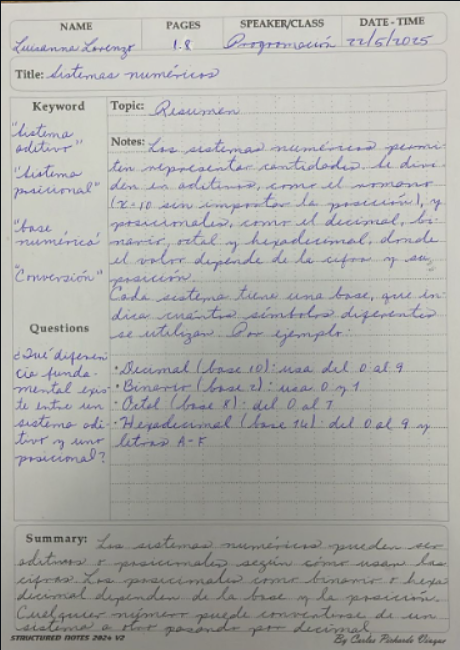 NAME
PAGES
SPEAKER/CLASS
DATE - TIME
Luisanna Lorenzo
1.8
Programación
22/5/2025
Title: Sistemas numéricos
Keyword
"Sistema
aditivo"
"Sistema
posicional"
"base
numérica"
"Conversión"
Questions
¿Qué diferen
cia funda-
mental exis
te entre un
sistema adi-
tivo y uno
posicional?
Topic: Resumen
Notes: Los sistemas numéricos permi-
ten representar cantidades. Se divi
den en aditivos, como el romano
(x=10 sin importar la posición), y
posicionales, como el decimal, bi-
nario, octal y hexadecimal, donde
el valor depende de la cifra y su
posición.
Cada sistema tiene una base, que in-
dica cuántos símbolos diferentes
se utilizan. Por ejemplo:
• Decimal (base 10): usa del 0 al 9
• Binario (base 2): usa 0 y 1
• Octal (base 8): del 0 al 7
• Hexadecimal (base 16): del 0 al 9 y
letras A-F
Summary: Los sistemas numéricos pueden ser
aditivos o posicionales según cómo usan las
cifras. Los posicionales como binario o hexa
decimal dependen de la base y la posición.
Cualquier número puede convertirse de un
sistema a otro pasando por decimal.
STRUCTURED NOTES 2024 V2
By Carlos Pichardo Vicioso